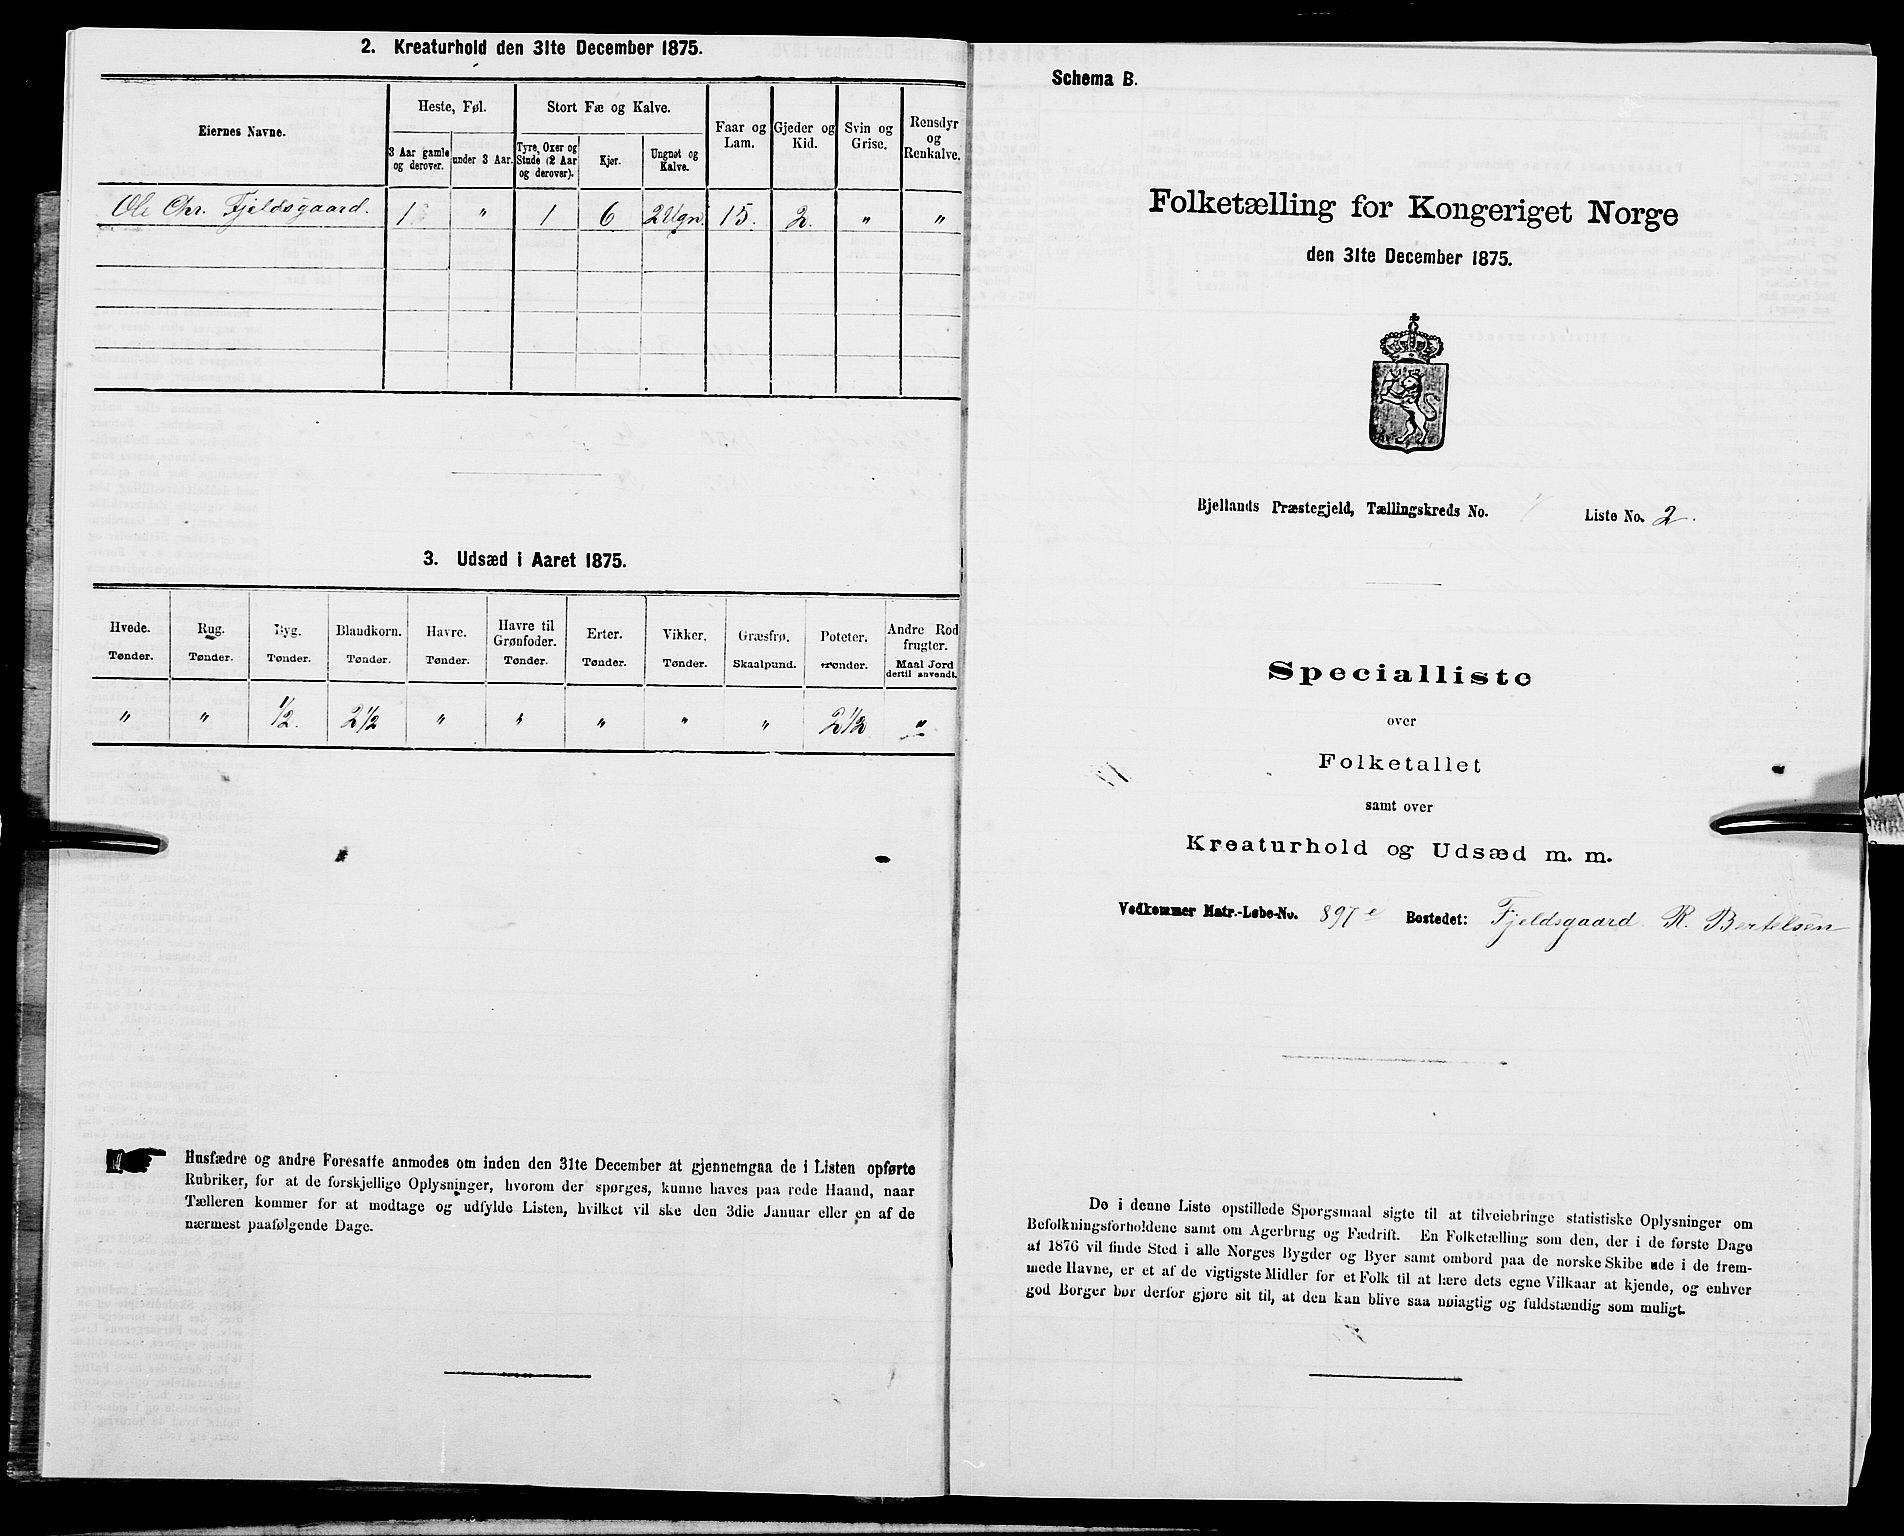 2. Kreaturhold den 31te December 1875.
Eiernes Navne.
Heste, Føl.
Stort Fæ og Kalve.
Faar og Lam.
Gjeder og Kid.
Svin og Grise.
Rensdyr og Renkalve.
3 Aar gamle og derover.
under 3 Aar.
Tyre, Oxer og Stude (2 Aar og derover).
Kjør.
Ungnøt og Kalve.
Ole Chr. Fjeldsgaard. 1 " 1 6 2 Ugn. 15. 2. " "
3. Udsæd i Aaret 1875.
Hvede. Rug. Byg. Blandkorn. Havre. Havre til Grønfoder. Erter. Vikker. Græsfrø. Poteter. Andre Rodfrugter.
Tønder. Tønder. Tønder. Tønder. Tønder. Tønder. Tønder. Tønder. Skaalpund. Tønder. Maal Jord dertil anvendt.
" " 1/2. 2 1/2 " " " " " 2 1/2 "
Husfædre og andre Foresatte anmodes om inden den 31te December at gjennemgaa de i Listen opførte
Rubriker, for at de forskjellige Oplysninger, hvorom der spørges, kunne haves paa rede Haand, naar
Tælleren kommer for at modtage og udfylde Listen, hvilket vil ske den 3die Januar eller en af de
nærmest paafølgende Dage.
Schema B.
Folketælling for Kongeriget Norge
den 31te December 1875.
Bjellands Præstegjeld, Tællingskreds No. 1 Liste No. 2.
Specialliste
over
Folketallet
samt over
Kreaturhold og Udsæd m. m.
Vedkommer Matr.-Løbe-No. 897e Bostedet: Fjeldsgaard R. Bertelsen
De i denne Liste opstillede Spørgsmaal sigte til at tilveiebringe statistiske Oplysninger om
Befolkningsforholdene samt om Agerbrug og Fædrift. En Folketælling som den, der i de første Dage
af 1876 vil finde Sted i alle Norges Bygder og Byer samt ombord paa de norske Skibe ude i de frem-
mede Havne, er et af de vigtigste Midler for et Folk til at lære dets egne Vilkaar at kjende, og enhver
god Borger bør derfor gjøre sit til, at den kan blive saa nøiagtig og fuldstændig som muligt.